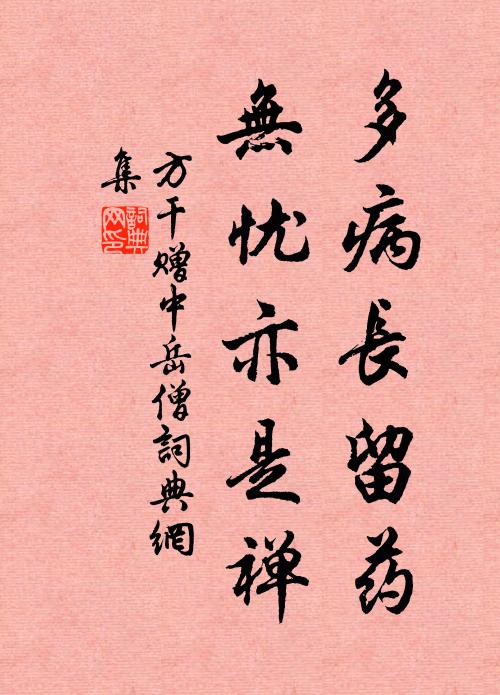 多病長留药
無忧亦是禅
方干赠中岳僧詞典網
集
詞典网印